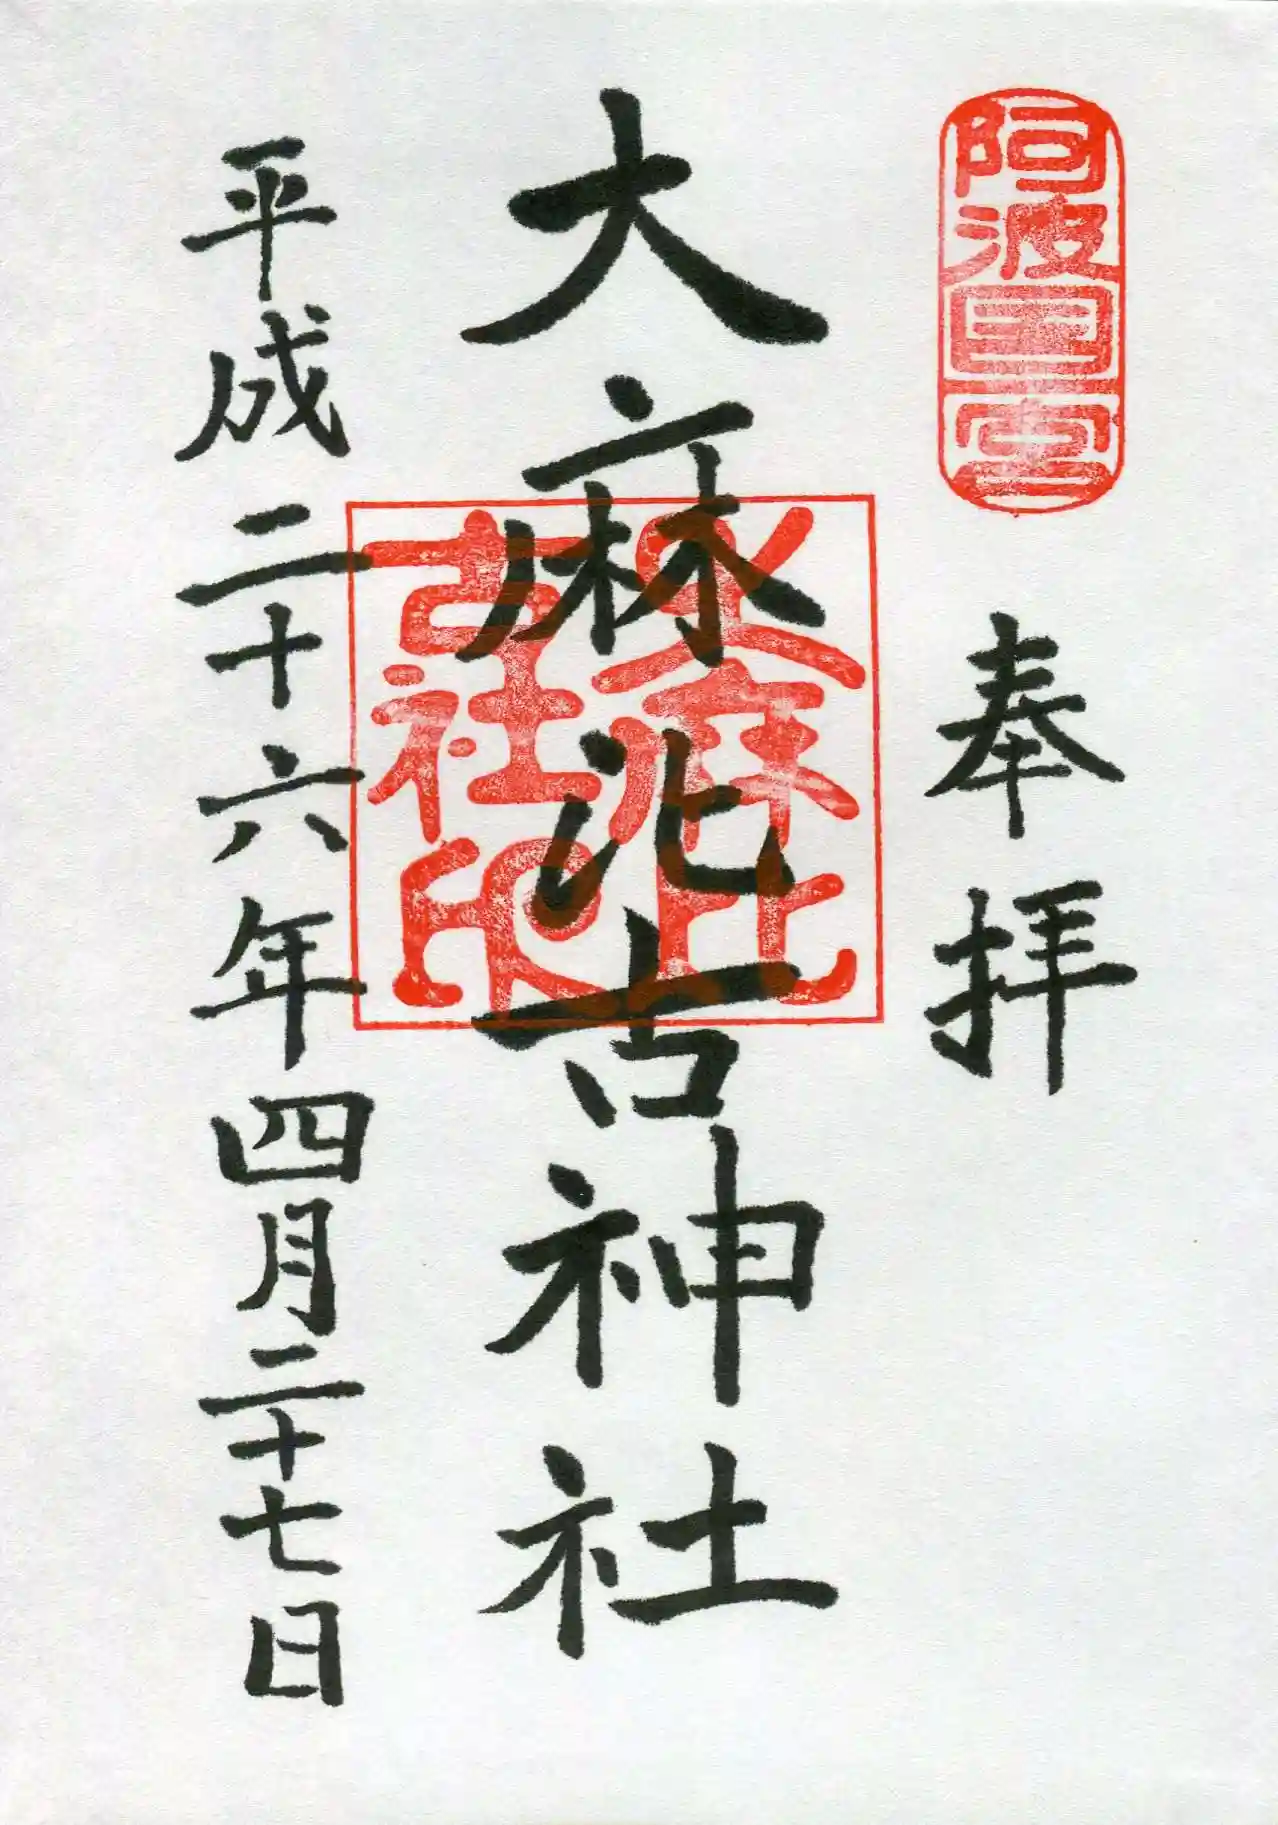 阿波国一宮
奉拝
大麻比古神社
大麻比
古社印
平成二十六年四月二十七日